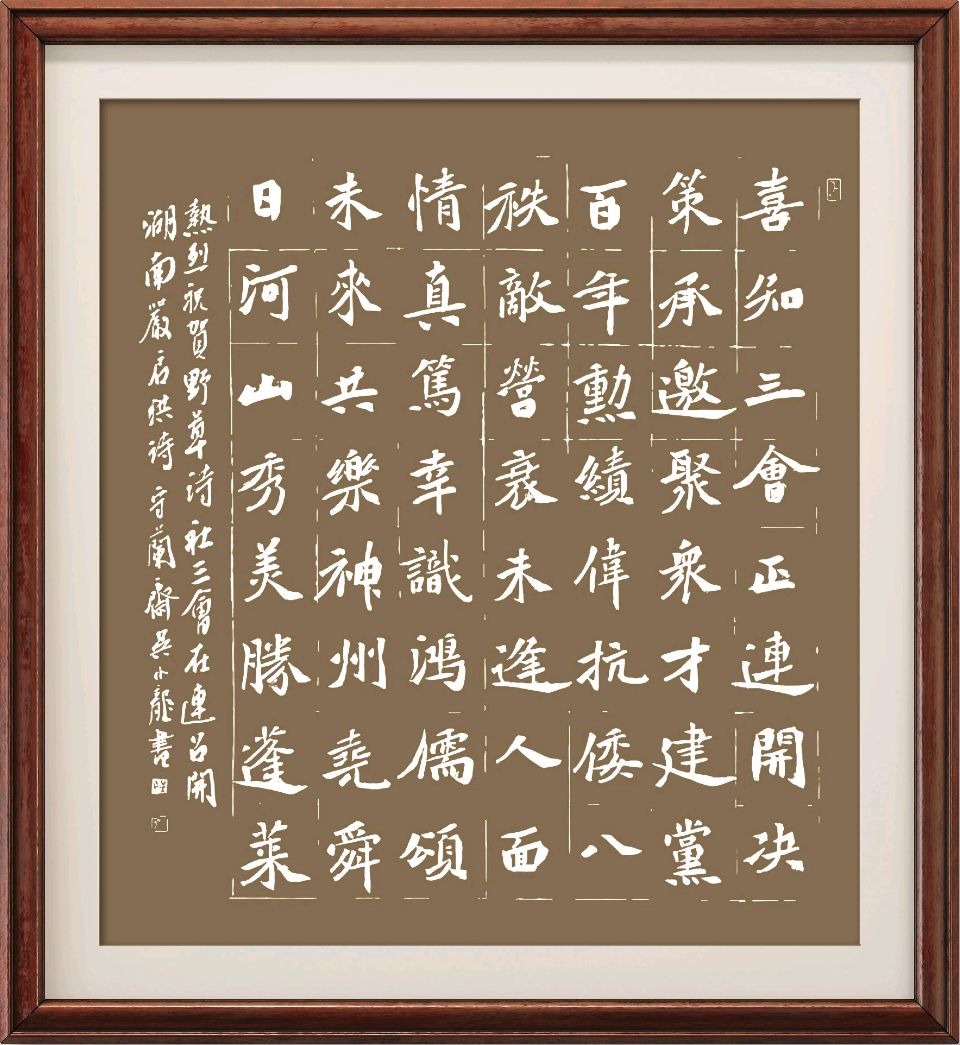 喜知三會正連開决
策承邀聚衆才建黨
百年勳績偉抗倭八
秩敵營衰未逢人面
情真篤幸識鴻儒頌
未來共樂神州堯舜
日河山秀美勝蓬萊
熱烈祝賀野草诗社三會在連召開
湖南嚴启洪诗守蘭齋吴小龍書